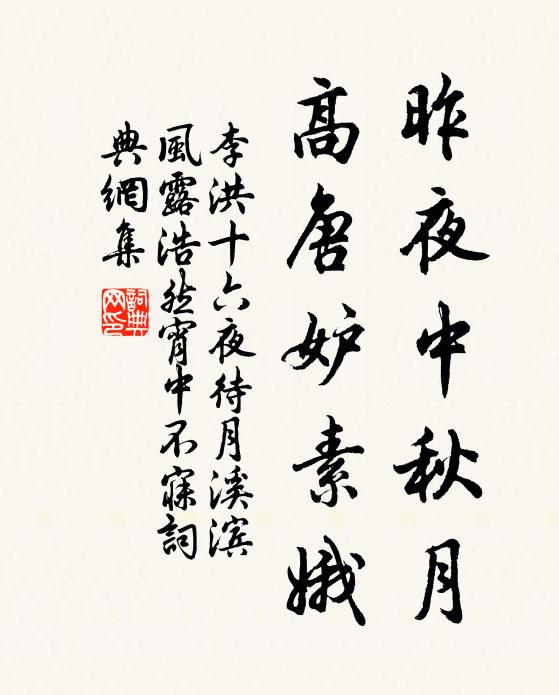 昨夜中秋月
高唐妒素娥
李洪十六夜待月溪滨
風露浩然宵中不寐詞
典網集
詞典网印